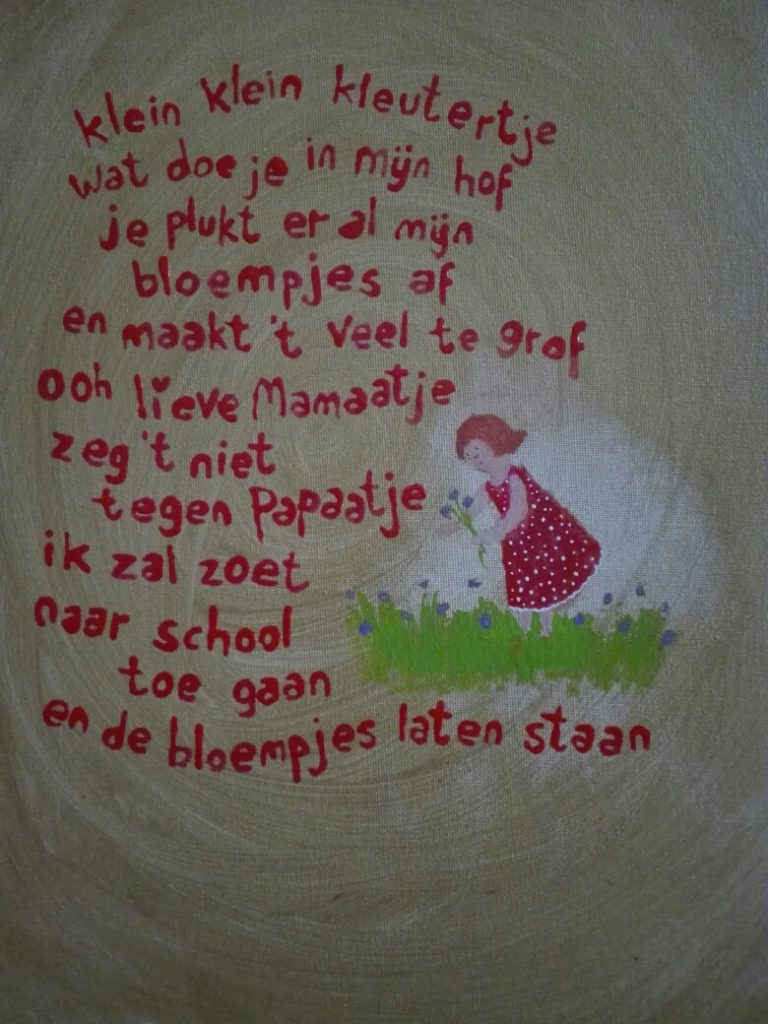 klein klein kleutertje
wat doe je in mijn hof
je plukt er al mijn
bloempjes af
en maakt 't veel te grof
ooh lieve Mamaatje
zeg 't niet
tegen Papaatje
ik zal zoet
naar school
toe gaan
en de bloempjes laten staan